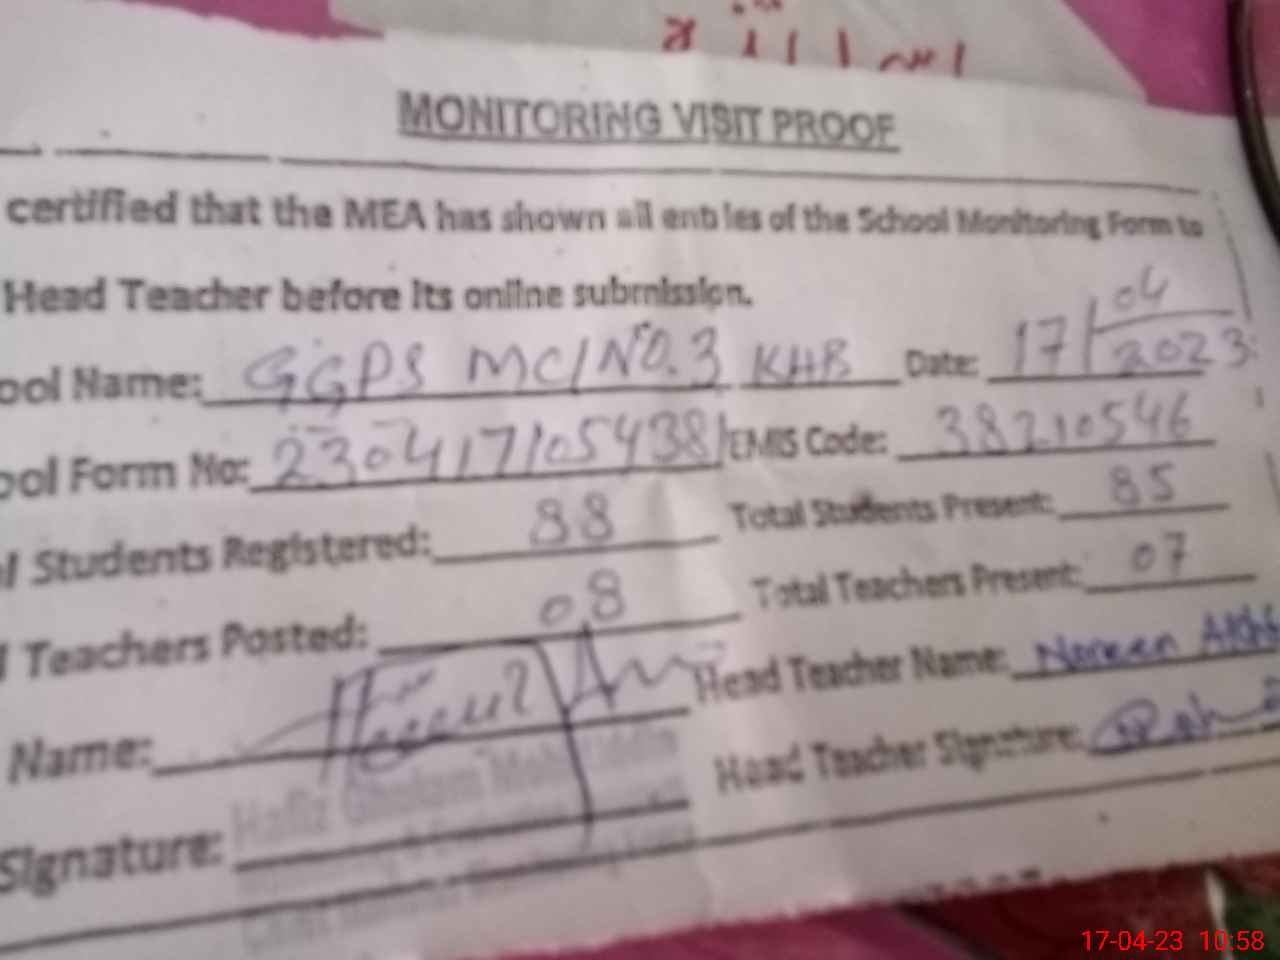 MONITORING VISIT PROOF
certified that the MEA has shown all entries of the School Monitoring Form to
Head Teacher before its online submission.
ool Name: GGPS MC/NO.3 KHB Date: 17/04/2023
ool Form No: 230417105438 EMIS Code: 38210546
l Students Registered: 88 Total Students Present: 85
l Teachers Posted: 08 Total Teachers Present: 07
Name: Head Teacher Name: Noreen
Signature: Hafiz Ghulam Head Teacher Signature:
17-04-23 10:58